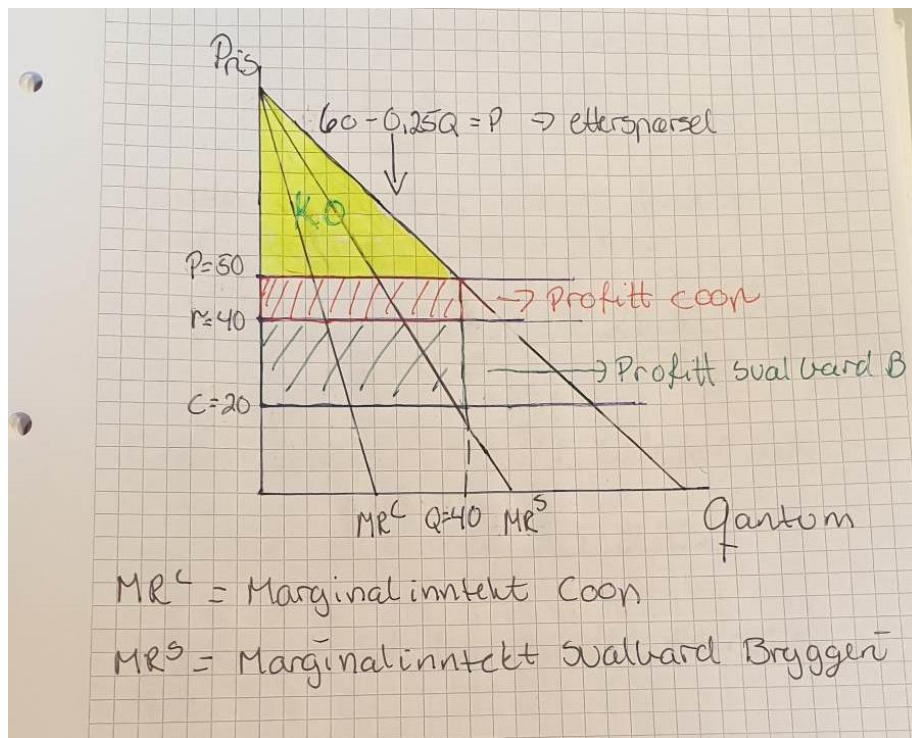 Pris
60 - 0,25Q = P → etterspørsel
K.O
P=50
→ Profitt coop
r=40
→ Profitt svalbard B
C=20
MRᶜ Q=40 MRˢ
Qantum
MRᶜ = Marginalinntekt Coop
MRˢ = Marginalinntekt Svalbard Bryggeri